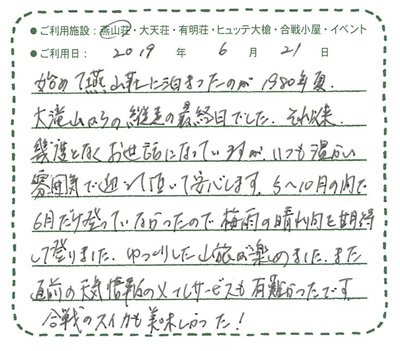 ●ご利用施設:燕山荘・大天荘・有明荘・ヒュッテ大槍・合戦小屋・イベント
●ご利用日: 2019 年 6 月 21 日
始めて燕山荘に泊まったのが1980年夏.
大滝山からの縦走の最終日でした. それ以来.
幾度となくお世話になっていますが、いつも温かい
雰囲気で迎って頂いて安心します. 5~10月の間で
6月だけ登っていなかったので梅雨の晴れ間を期待
して登りました. ゆっくりした山旅が楽しめました. また
直前の天気情報のメールサービスも有難かったです
合戦のスイカも美味しかった!